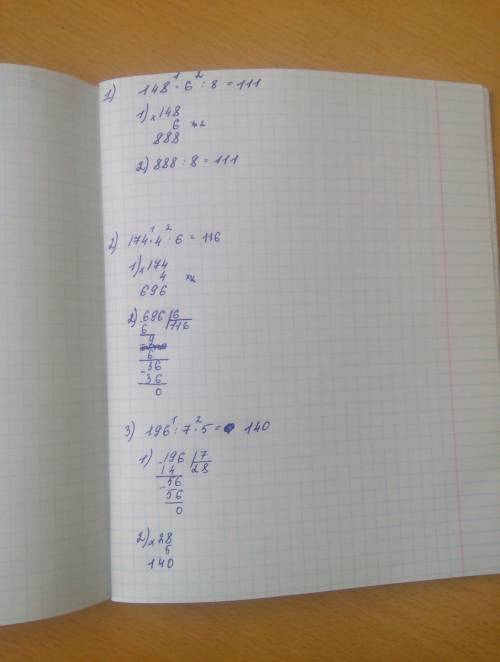 1) 148 · 6 : 8 = 111
1) × 148
6
888
2) 888 : 8 = 111
2) 174 · 4 : 6 = 116
1) × 174
4
696
2) 696 | 6
6 | 116
9
6
- 36
36
0
3) 196 : 7 · 5 = 140
1) - 196 | 7
14 | 28
- 56
56
0
2) × 28
5
140